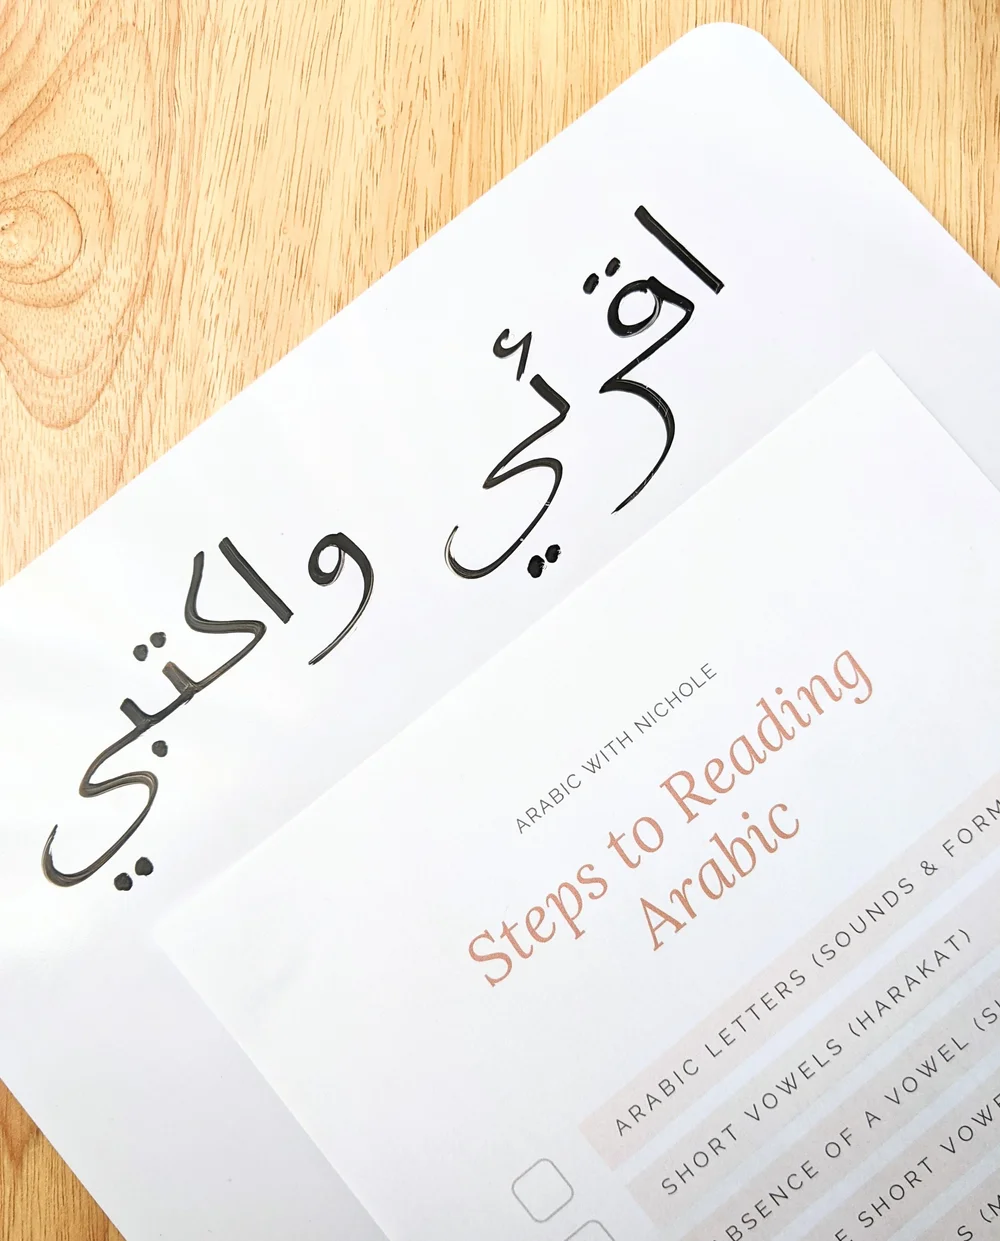 اقرئي واكتبي
ARABIC WITH NICHOLE
Steps to Reading
Arabic
ARABIC LETTERS (SOUNDS &
SHORT VOWELS (HARAKAT)
OF A VOWEL
SHORT